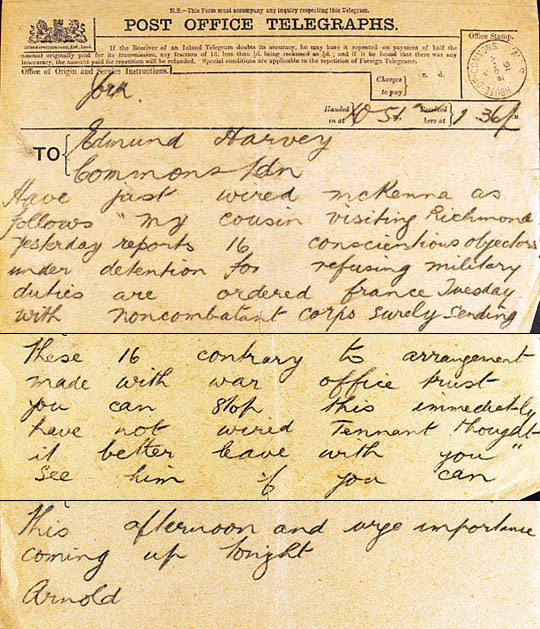 N.B.—This Form must accompany any inquiry respecting this Telegram.
POST OFFICE TELEGRAPHS.
If the Receiver of an Inland Telegram doubts its accuracy, he may have it repeated on payment of half the
amount originally paid for its transmission, any fraction of 1d. less than ½d. being reckoned as ½d.; and if it be found that there was any
inaccuracy, the amount paid for repetition will be refunded. Special conditions are applicable to the repetition of Foreign Telegrams.
Office Stamp.
Office of Origin and Service Instructions.
York
Charges
to pay
s. d.
Handed
in at
Received
here at
TO
Edmund Harvey
Commons Ldn
Have just wired McKenna as
follows "My cousin visiting Richmond
Yestrday reports 16 conscientious objectors
under detention for refusing military
duties are ordered france Tuesday
with noncombatant corps surely sending
these 16 contrary to arrangement
made with war office trust
you can stop this immediately
have not wired Tennant thought
it better leave with you"
see him if you can
this afternoon and urge importance
coming up tonght
Arnold